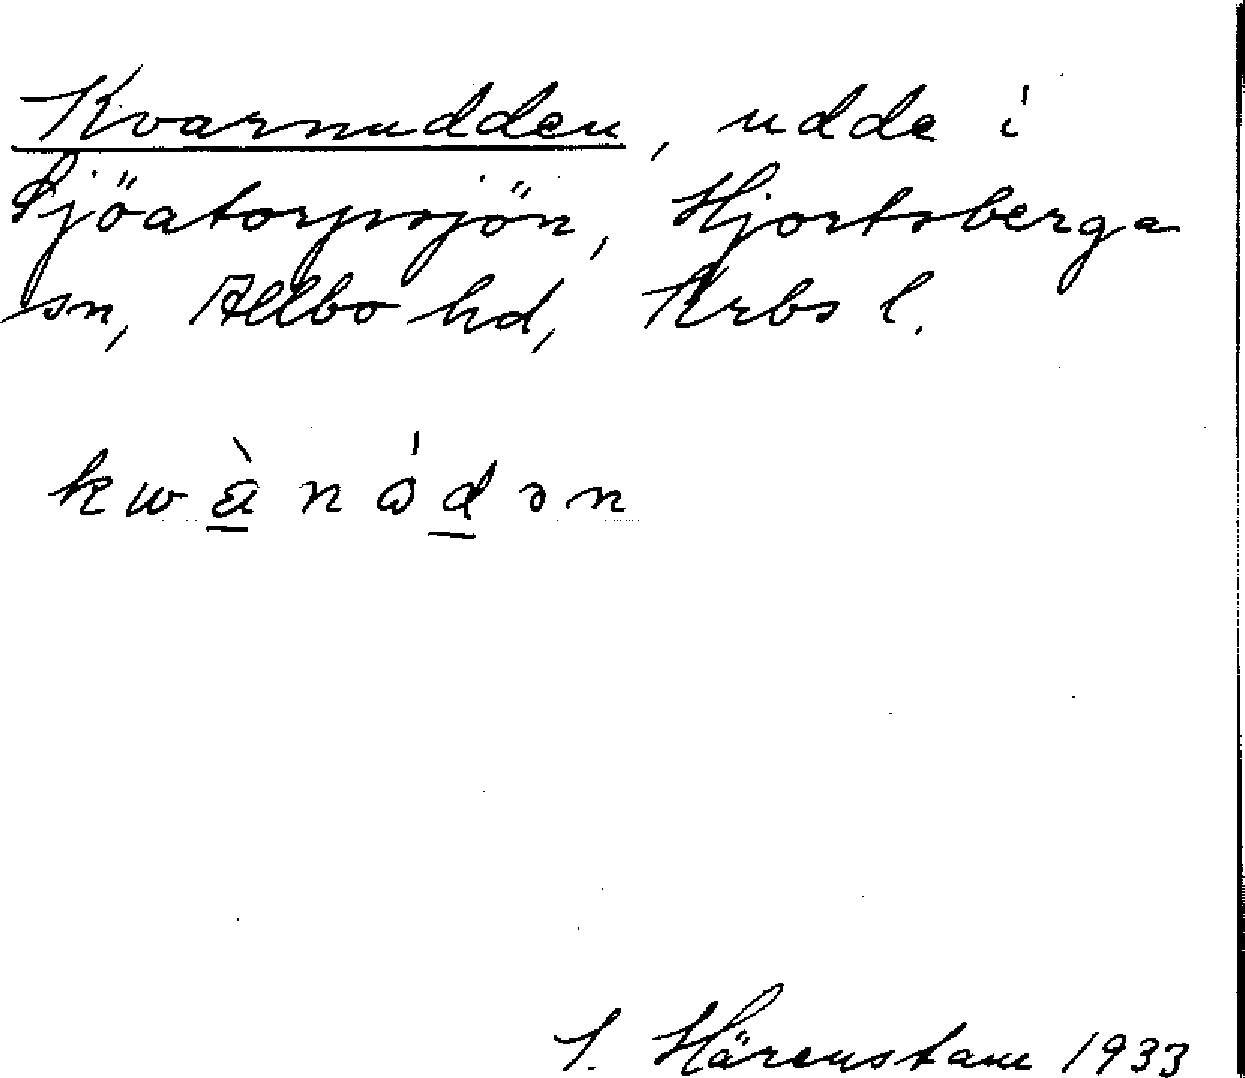 Kvarnudden, udde i
Sjöatorpssjön, Hjortsberga
sn, Allbo hd, Krbs l.
kwànádən
I. Härenstam 1933